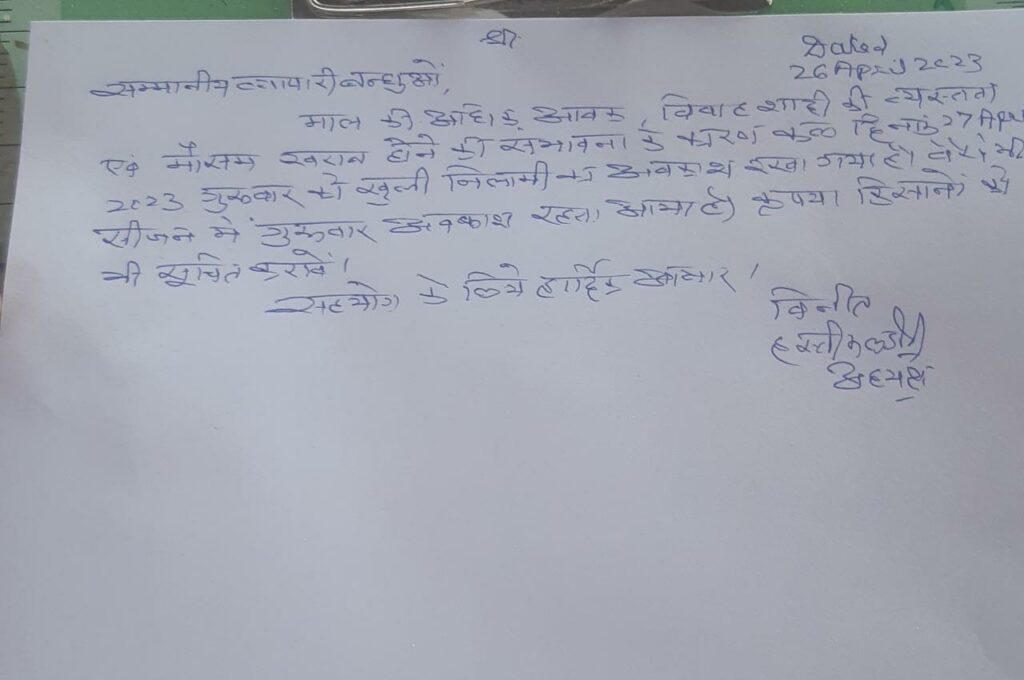 श्री
Dated
26 April 2023
सम्मानीय व्यापारी बन्धुओं,
माल की अधिक आवक, विवाह शादी की व्यस्तता
एवं मौसम खराब होने की संभावना के कारण कल दिनांक 27 Apri
2023 गुरुवार को खुली निलामी का अवकाश रखा गया है। वैसे भी
सीजन में गुरुवार अवकाश रहता आया है। कृपया किसानों को
भी सूचित करावें।
सहयोग के लिये हार्दिक आभार।
विनीत
हस्तीमल
अध्यक्ष